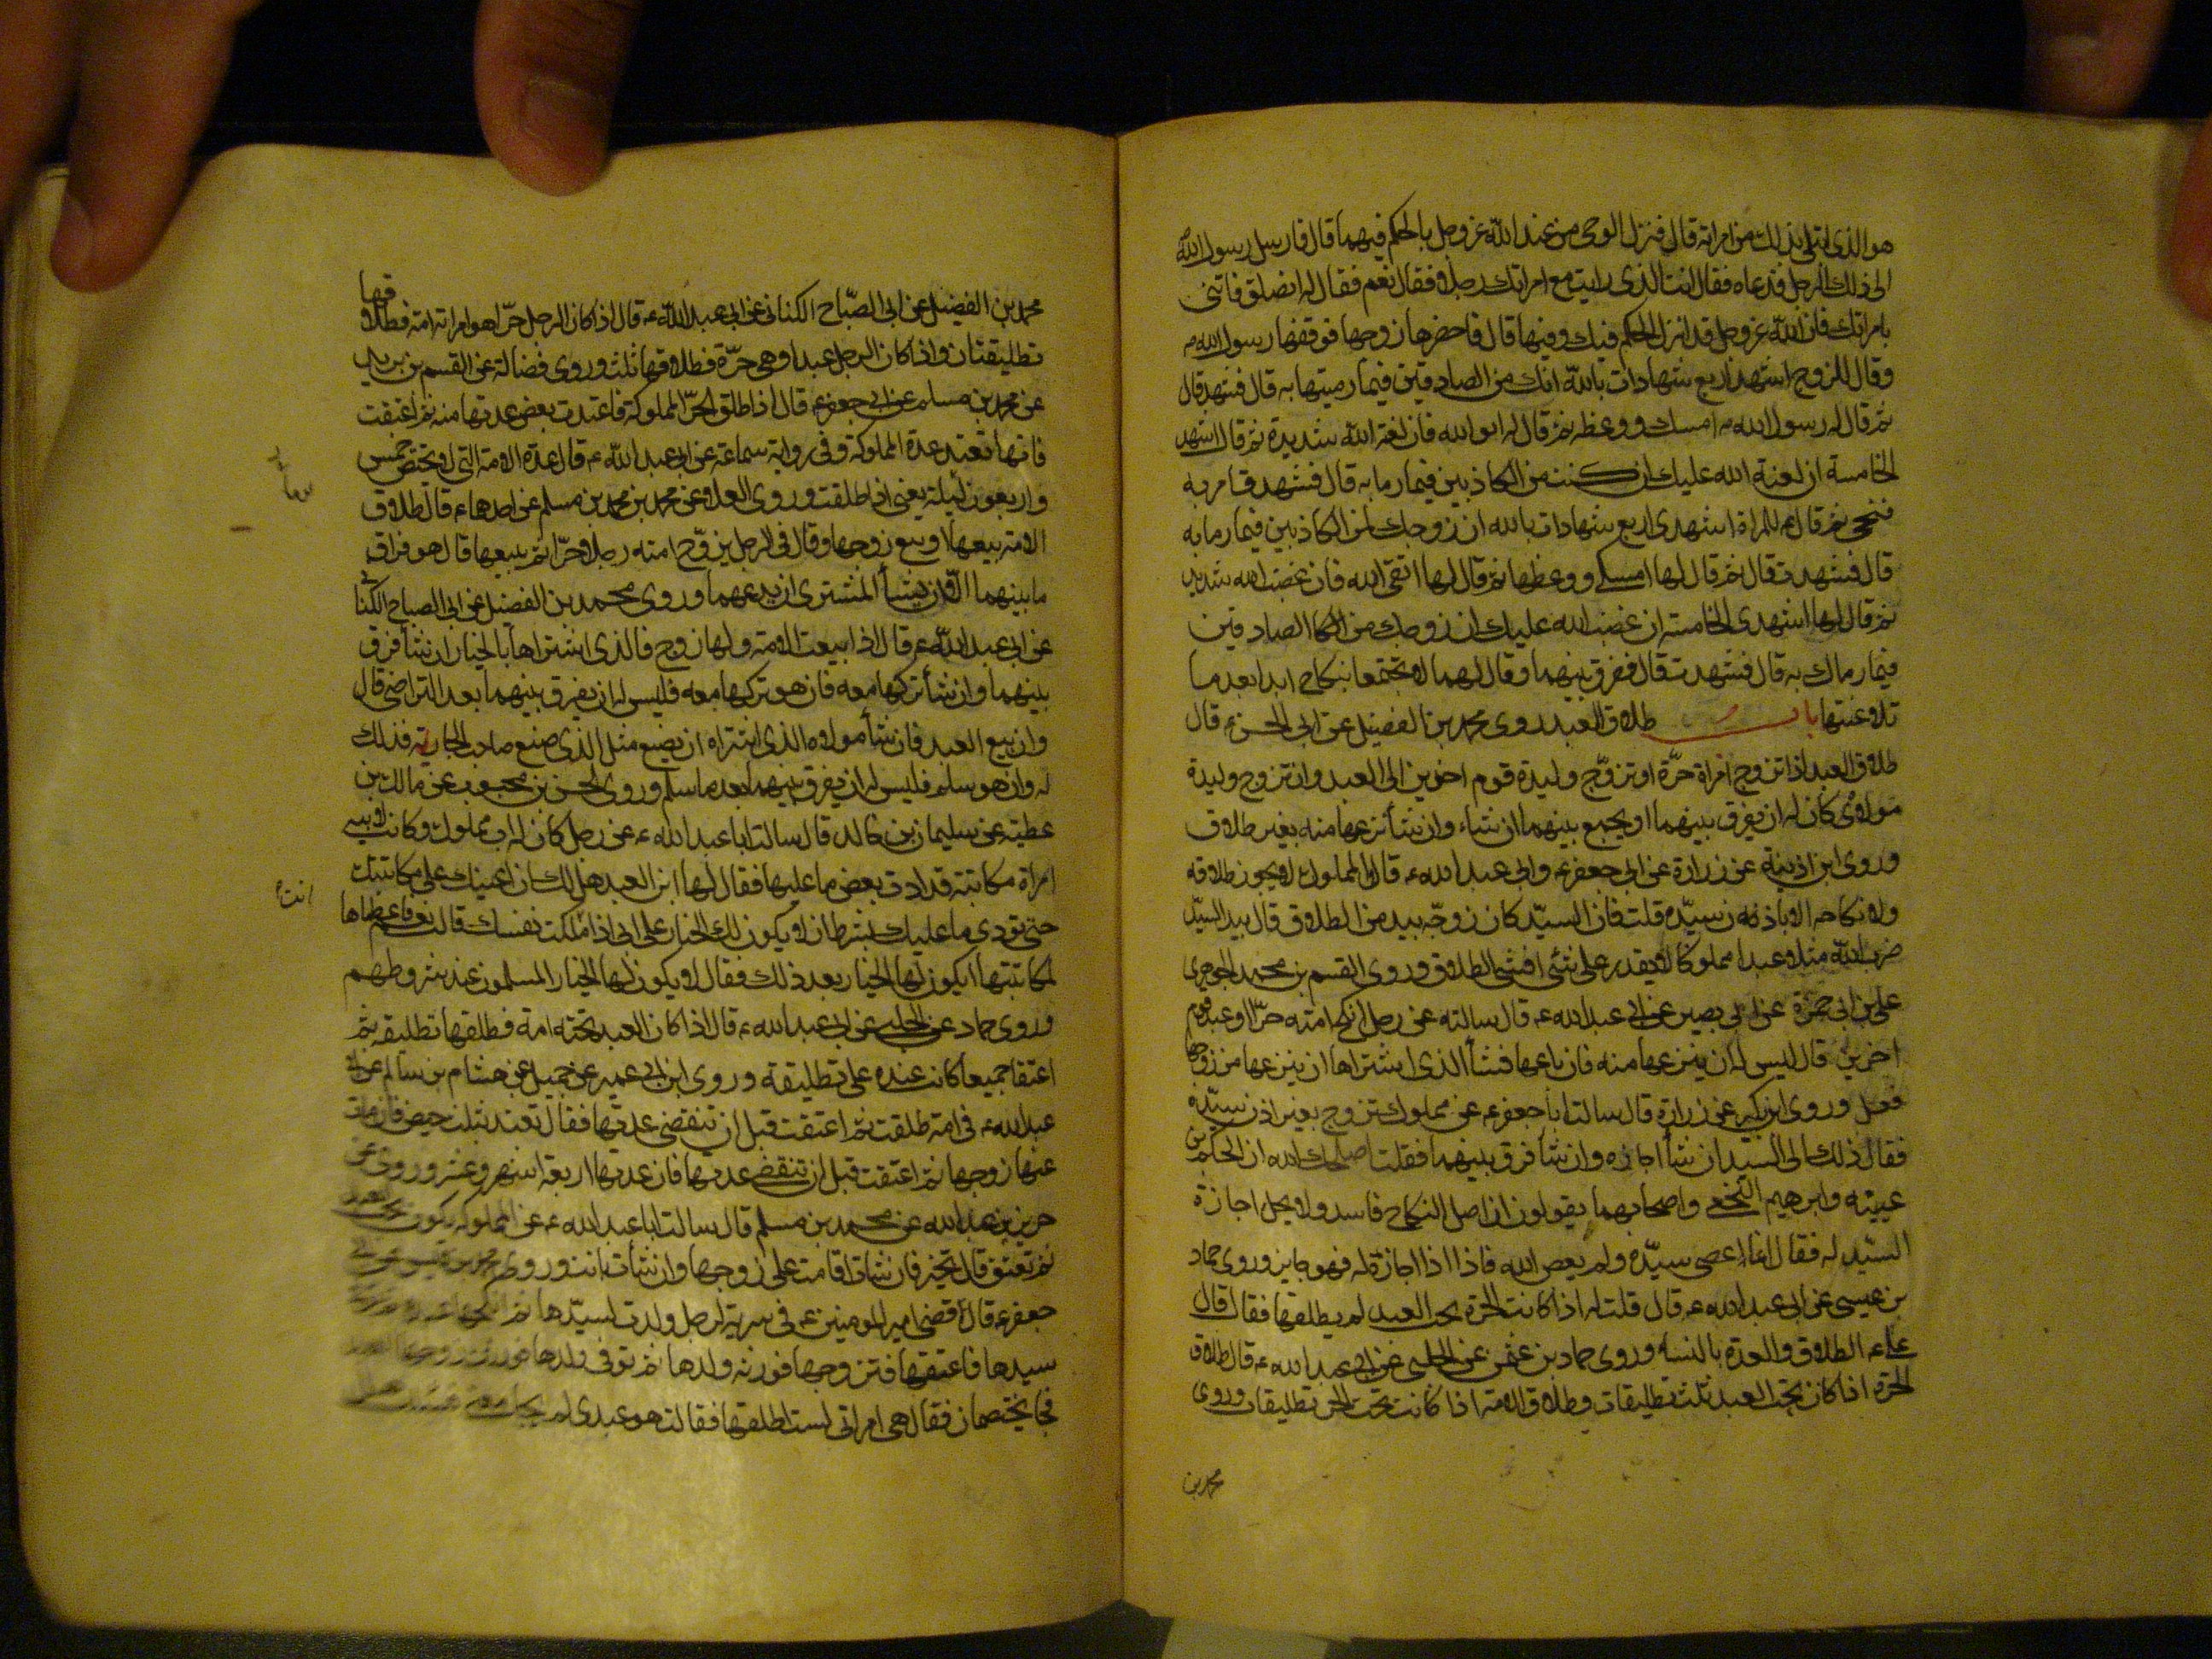 هو الذى ابتلى بذلك من امراته قال فنزل الوحى من عند الله عز وجل بالحكم فيهما قال فارسل رسول الله
الى ذلك الرجل فدعاه فقال انت الذى رايت مع امراتك رجلا فقال نعم فقال له انطلق فاتنى
بامراتك فان الله عز وجل قد انزل الحكم فيك وفيها قال فاحضرها زوجها فوقفها رسول الله ص
وقال للزوج اشهد اربع شهادات بالله انك من الصادقين فيما رميتها به قال فشهد قال
ثم قال له رسول الله ص امسك ووعظه ثم قال له اتق الله فان لعنة الله شديدة ثم قال اشهد
الخامسة ان لعنة الله عليك ان كنت من الكاذبين فيما رما به قال فشهد فامر به
فنحى ثم قال ع للمراة اشهدى اربع شهادات بالله ان زوجك لمن الكاذبين فيما رما به
قال فشهدت قال ثم قال لها امسكى ووعظها ثم قال لها اتقى الله فان غضب الله شديد
ثم قال لها اشهدى الخامسة ان غضب الله عليك ان زوجك من الصادقين
فيما رماك به قال فشهدت قال ففرق بينهما وقال لهما لا تجتمعا بنكاح ابدا بعد ما
تلاعنتما باب طلاق العبد روى محمد بن الفضيل عن ابى الحسن ع قال
طلاق العبد اذا تزوج امراة حرّة او تزوّج وليدة قوم اخرين الى العبد وان تزوج وليدة
مولاه كان له ان يفرق بينهما او يجمع بينهما ان شاء وان شاء نزعها منه بغير طلاق
وروى ابن اذينة عن زرارة عن ابى جعفر ع وابى عبد الله ع قال المملوك لا يجوز طلاقه
ولا نكاحه الا باذن سيّده قلت فان السيّد كان زوجّه بيد من الطلاق قال بيد السيّد
ضرب الله مثلا عبدا مملوكا لا يقدر على شئ افشئ الطلاق وروى القسم بن محمد الجوهرى
على بن ابى حمزة عن ابى بصير عن ابى عبد الله ع قال سالته عن رجل انكح امته حرّا او عبد قوم
اخرين قال ليس له ان ينزعها منه فان باعها فشاء الذى اشتراها ان ينزعها من زوجها
فعل وروى ابن بكير عن زرارة قال سالت ابا جعفر ع عن مملوك تزوج بغير اذن سيّده
فقال ذلك الى السيد ان شاء اجازه وان شاء فرق بينهما فقلت اصلحك الله ان الحكم بن
عيينه وابرهيم النخعى واصحابهما يقولون ان اصل النكاح فاسد ولا يحل اجازة
السيّد له فقال انما عصى سيّده ولم يعص الله فاذا اجازة له فهو جايز وروى حماد
بن عيسى عن ابى عبد الله ع قال قلت له اذا كانت الحرة تحت العبد لم يطلقها فقال قال
على ع الطلاق والعدة بالنساء وروى حماد بن عثمن عن الحلبى عن ابى عبد الله ع قال طلاق
الحرة اذا كان تحت العبد ثلث تطليقات وطلاق الامة اذا كانت تحت الحر تطليقتان وروى
محمد بن
محمد بن الفضيل عن ابى الصبّاح الكنانى عن ابى عبد الله ع قال اذا كان الرجل حرّا وامراته امة فطلاقها
تطليقتان واذا كان الرجل عبدا وهى حرّة فطلاقها ثلث وروى فضالة عن القسم بن بريد
عن محمد بن مسلم عن ابى جعفر ع قال اذا طلق الحرّ المملوكة فاعتدت بعض عدتها منه ثم اعتقت
فانها تعتد عدة المملوكة وفى رواية سماعة عن ابى عبد الله ع قال عدة الامة التى لا تحيض خمس
واربعون ليلة يعنى اذا طلقت وروى العلاء عن محمد بن محمد بن مسلم عن احدهما ع قال طلاق
الامة بيعها او بيع زوجها وقال فى الرجل يزوّج امته رجلا حرّا ثم يبيعها قال هو فراق
ما بينهما الا ان يشاء المشترى ان يدعهما وروى محمد بن الفضيل عن ابى الصباح الكنانى
عن ابى عبد الله ع قال اذا بيعت الامة ولها زوج فالذى اشتراها بالخيار ان شاء فرق
بينهما وان شاء تركها معه فان هو تركها معه فليس له ان يفرق بينهما بعد التراضى قال
وان بيع العبد فان شاء مولاه الذى اشتراه ان يصنع مثل الذى صنع صاحب الجارية فذلك
له وان هو سلم فليس له ان يفرق بينهما بعد ما سلم وروى الحسن بن محبوب عن مالك بن
عطية عن سليمان بن خالد قال سالت ابا عبد الله ع عن رجل كان له اب مملوك وكانت لابيه
امراة مكاتبة قد ادت بعض ما عليها فقال لها ابن العبد هل لك ان اعينك على مكاتبتك
انت
حتى تودى ما عليك بشرط ان لا يكون لك الخيار على ابى اذا ملكت نفسك قالت نعم فاعطاها
لمكاتبتها ايكون لها الخيار بعد ذلك فقال لا يكون لها الخيار المسلمون عند شروطهم
وروى حماد عن الحلبى عن ابى عبد الله ع قال اذا كان العبد تحته امة فطلقها تطليقة ثم
اعتقا جميعا كانت عنده على تطليقة وروى ابن ابى عمير عن جميل عن هشام بن سالم عن ابى
عبد الله ع فى امة طلقت ثم اعتقت قبل ان تنقضى عدتها فقال تعتد بثلث حيض فان مات
عنها زوجها ثم اعتقت قبل ان تنقضى عدتها فان عدتها اربعة اشهر وعشر وروى عن
حريز بن عبد الله عن محمد بن مسلم قال سالت ابا عبد الله ع عن المملوكة يكون تحت العبد
ثم تعتق قال تخير فان شاءت اقامت على زوجها وان شاءت بانت وروى محمد بن قيس عن ابى
جعفر ع قال قضى امير المومنين ع فى سرية لرجل ولدت لسيّدها ثم انكحها
سيدها فاعتقها فتزوجها فورثه ولدها ثم توفى ولدها فورثت زوجها
فجا يختصمان فقال هى امراتى لست اطلقها فقالت هو عبدى لم